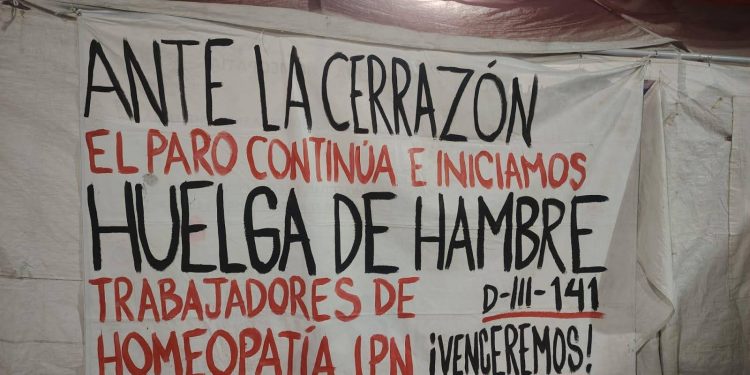 ANTE LA CERRAZÓN
EL PARO CONTINÚA E INICIAMOS
HUELGA DE HAMBRE
TRABAJADORES DE D-III-141
HOMEOPATÍA IPN ¡VENCEREMOS!